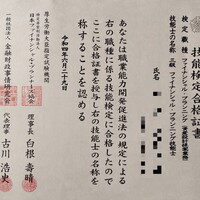 技能検定合格証書
検定職種 ファイナンシャル・プランニング
(資産設計提案業務)
技能士の名称 三級 ファイナンシャル・プランニング技能士
氏名
あなたは職業能力開発促進法の規定による
右の職種に係る技能検定に合格したので
ここに合格証書を授与し右の技能士の名称を
称することを認める
令和四年六月二十九日
厚生労働大臣指定試験機関
日本ファイナンシャル・プランナーズ協会
理事長 白根壽晴
一般社団法人 金融財政事情研究会
代表理事 古川浩史